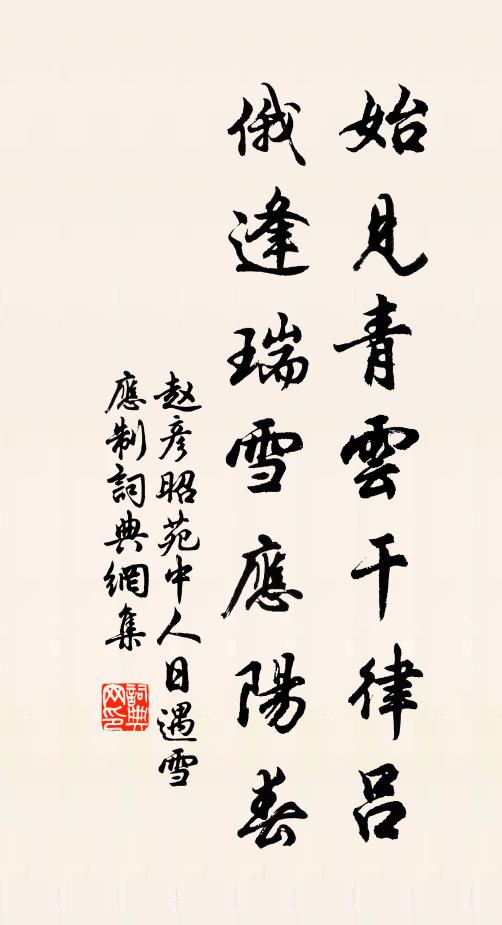 始見青雲干律呂
俄逢瑞雪應陽春
赵彦昭苑中人日遇雪
應制詞典網集
詞典网印